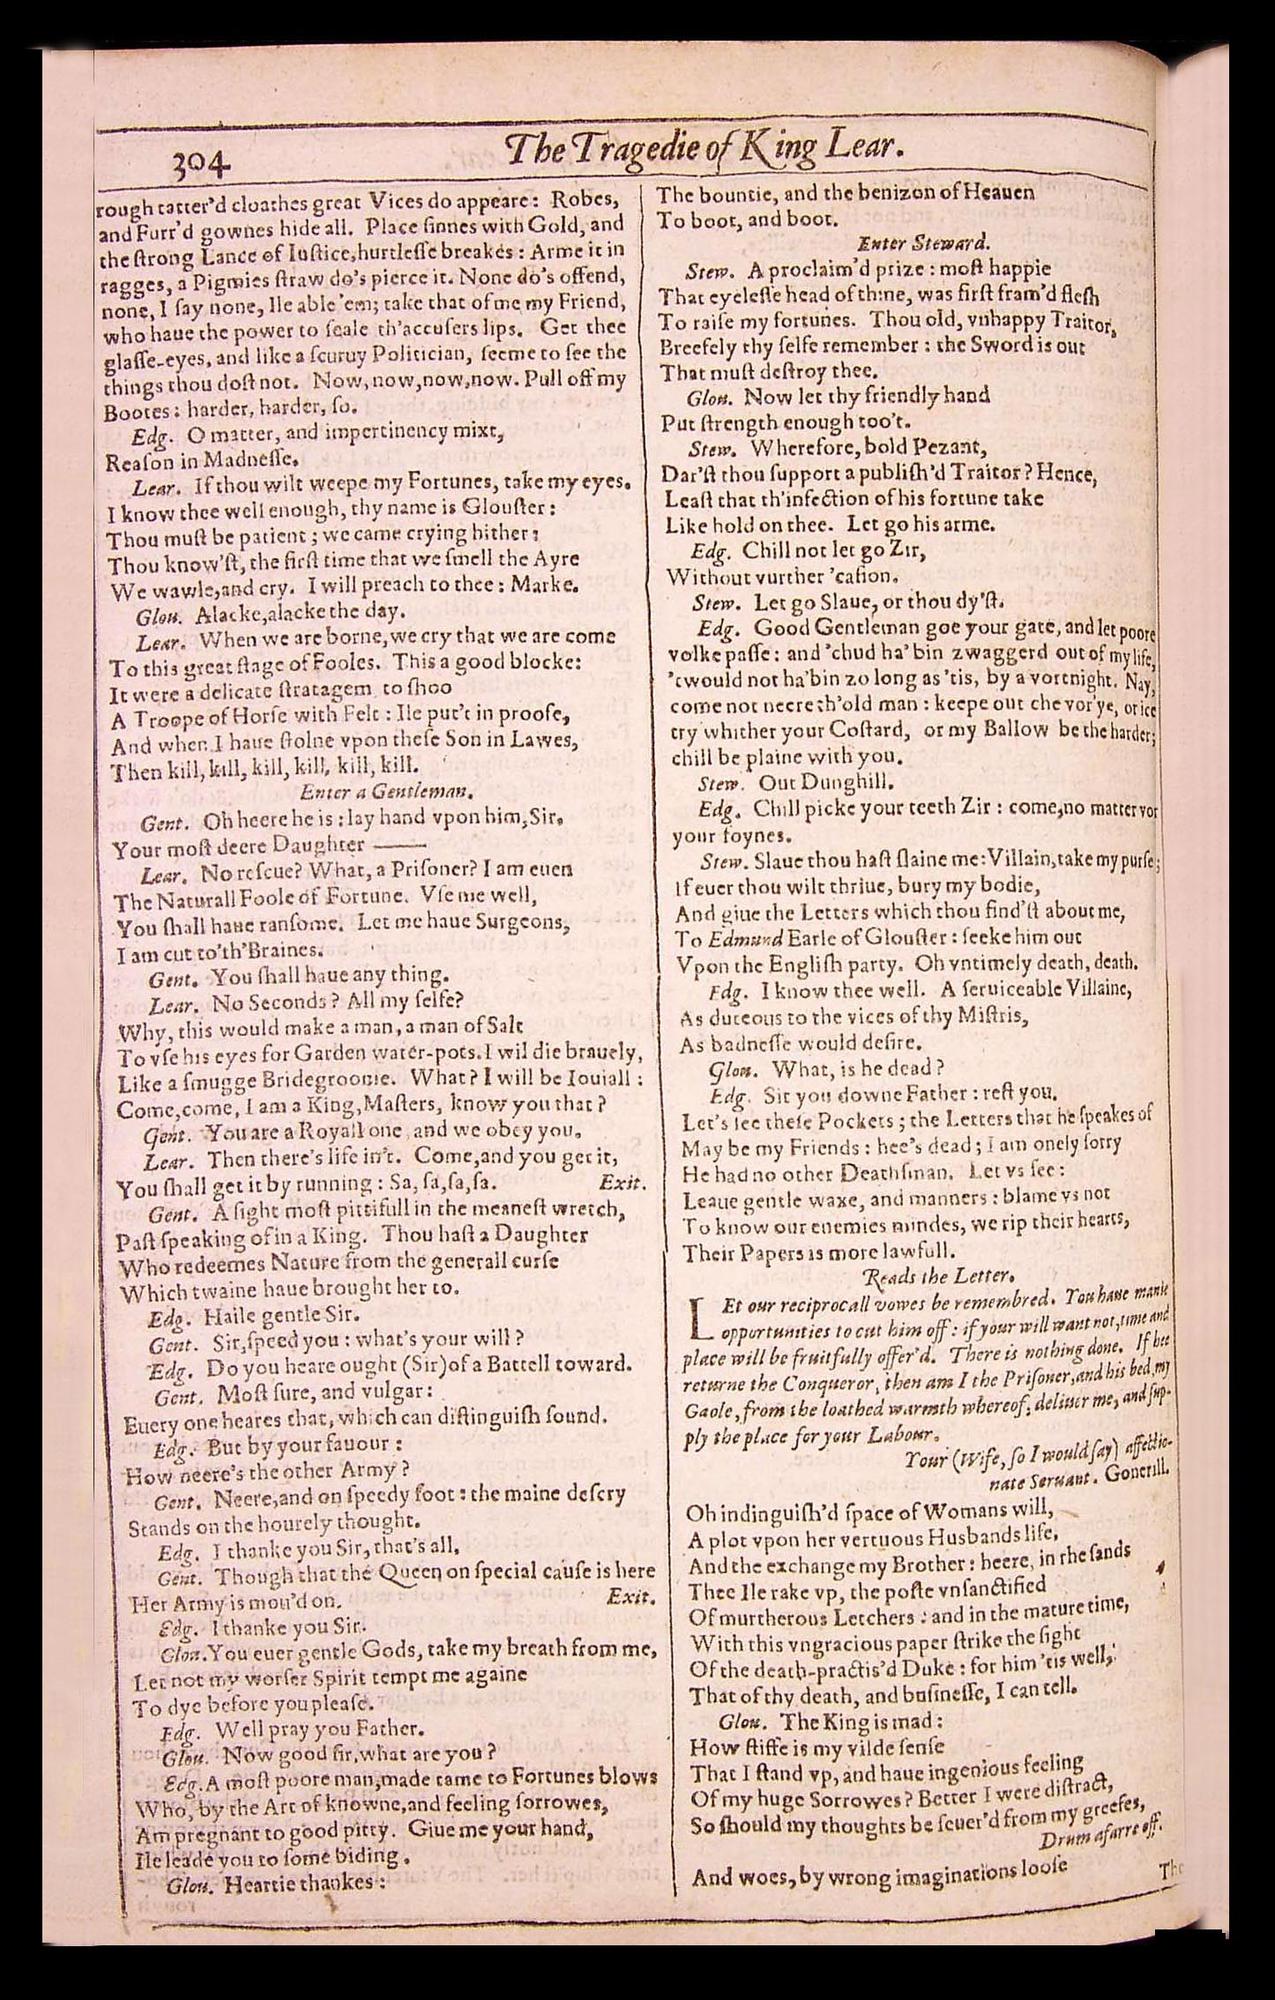 304
The Tragedie of King Lear.
rough tatter'd cloathes great Vices do appeare: Robes,
and Furr'd gownes hide all. Place sinnes with Gold, and
the strong Lance of Iustice, hurtlesse breakes: Arme it in
ragges, a Pigmies straw do's pierce it. None do's offend,
none, I say none, Ile able 'em; take that of me my Friend,
who haue the power to seale th'accusers lips. Get thee
glasse-eyes, and like a scuruy Politician, seeme to see the
things thou dost not. Now, now, now, now. Pull off my
Bootes: harder, harder, so.
Edg. O matter, and impertinency mixt,
Reason in Madnesse.
Lear. If thou wilt weepe my Fortunes, take my eyes.
I know thee well enough, thy name is Glouster:
Thou must be patient; we came crying hither:
Thou know'st, the first time that we smell the Ayre
We wawle, and cry. I will preach to thee: Marke.
Glou. Alacke, alacke the day.
Lear. When we are borne, we cry that we are come
To this great stage of Fooles. This a good blocke:
It were a delicate stratagem to shoo
A Troope of Horse with Felt: Ile put't in proofe,
And when I haue stolne vpon these Son in Lawes,
Then kill, kill, kill, kill, kill, kill.
Enter a Gentleman.
Gent. Oh heere he is: lay hand vpon him, Sir.
Your most deere Daughter ——
Lear. No rescue? What, a Prisoner? I am euen
The Naturall Foole of Fortune. Vse me well,
You shall haue ransome. Let me haue Surgeons,
I am cut to'th'Braines.
Gent. You shall haue any thing.
Lear. No Seconds? All my selfe?
Why, this would make a man, a man of Salt
To vse his eyes for Garden water-pots. I wil die brauely,
Like a smugge Bridegroome. What? I will be Iouiall:
Come, come, I am a King, Masters, know you that?
Gent. You are a Royall one, and we obey you.
Lear. Then there's life in't. Come, and you get it,
You shall get it by running: Sa, sa, sa, sa. Exit.
Gent. A sight most pittifull in the meanest wretch,
Past speaking of in a King. Thou hast a Daughter
Who redeemes Nature from the generall curse
Which twaine haue brought her to.
Edg. Haile gentle Sir.
Gent. Sir, speed you: what's your will?
Edg. Do you heare ought (Sir) of a Battell toward.
Gent. Most sure, and vulgar:
Euery one heares that, which can distinguish sound.
Edg. But by your fauour:
How neere's the other Army?
Gent. Neere, and on speedy foot: the maine descry
Stands on the hourely thought.
Edg. I thanke you Sir, that's all.
Gent. Though that the Queen on special cause is here
Her Army is mou'd on. Exit.
Edg. I thanke you Sir.
Glou. You euer gentle Gods, take my breath from me,
Let not my worser Spirit tempt me againe
To dye before you please.
Edg. Well pray you Father.
Glou. Now good sir, what are you?
Edg. A most poore man, made tame to Fortunes blows
Who, by the Art of knowne, and feeling sorrowes,
Am pregnant to good pitty. Giue me your hand,
Ile leade you to some biding.
Glou. Heartie thankes:
The bountie, and the benizon of Heauen
To boot, and boot.
Enter Steward.
Stew. A proclaim'd prize: most happie
That eyelesse head of thine, was first fram'd flesh
To raise my fortunes. Thou old, vnhappy Traitor,
Breefely thy selfe remember: the Sword is out
That must destroy thee.
Glou. Now let thy friendly hand
Put strength enough too't.
Stew. Wherefore, bold Pezant,
Dar'st thou support a publish'd Traitor? Hence,
Least that th'infection of his fortune take
Like hold on thee. Let go his arme.
Edg. Chill not let go Zir,
Without vurther 'casion.
Stew. Let go Slaue, or thou dy'st.
Edg. Good Gentleman goe your gate, and let poore
volke passe: and 'chud ha' bin zwaggerd out of my life,
'twould not ha'bin zo long as 'tis, by a vortnight. Nay,
come not neere th'old man: keepe out che vor'ye, or ice
try whither your Costard, or my Ballow be the harder;
chill be plaine with you.
Stew. Out Dunghill.
Edg. Chill picke your teeth Zir: come, no matter vor
your foynes.
Stew. Slaue thou hast slaine me: Villain, take my purse;
If euer thou wilt thriue, bury my bodie,
And giue the Letters which thou find'st about me,
To Edmund Earle of Glouster: seeke him out
Vpon the English party. Oh vntimely death, death.
Edg. I know thee well. A seruiceable Villaine,
As duteous to the vices of thy Mistris,
As badnesse would desire.
Glou. What, is he dead?
Edg. Sit you downe Father: rest you.
Let's see these Pockets; the Letters that he speakes of
May be my Friends: hee's dead; I am onely sorry
He had no other Deathsman. Let vs see:
Leaue gentle waxe, and manners: blame vs not
To know our enemies mindes, we rip their hearts,
Their Papers is more lawfull.
Reads the Letter.
LEt our reciprocall vowes be remembred. You haue manie
opportunities to cut him off: if your will want not, time and
place will be fruitfully offer'd. There is nothing done. If hee
returne the Conqueror, then am I the Prisoner, and his bed, my
Gaole, from the loathed warmth whereof, deliuer me, and sup-
ply the place for your Labour.
Your (Wife, so I would say) affectio-
nate Seruant. Gonerill.
Oh indinguish'd space of Womans will,
A plot vpon her vertuous Husbands life,
And the exchange my Brother: heere, in the sands
Thee Ile rake vp, the poste vnsanctified
Of murtherous Letchers: and in the mature time,
With this vngracious paper strike the sight
Of the death-practis'd Duke: for him 'tis well,
That of thy death, and businesse, I can tell.
Glou. The King is mad:
How stiffe is my vilde sense
That I stand vp, and haue ingenious feeling
Of my huge Sorrowes? Better I were distract,
So should my thoughts be seuer'd from my greefes,
Drum afarre off.
And woes, by wrong imaginations loose